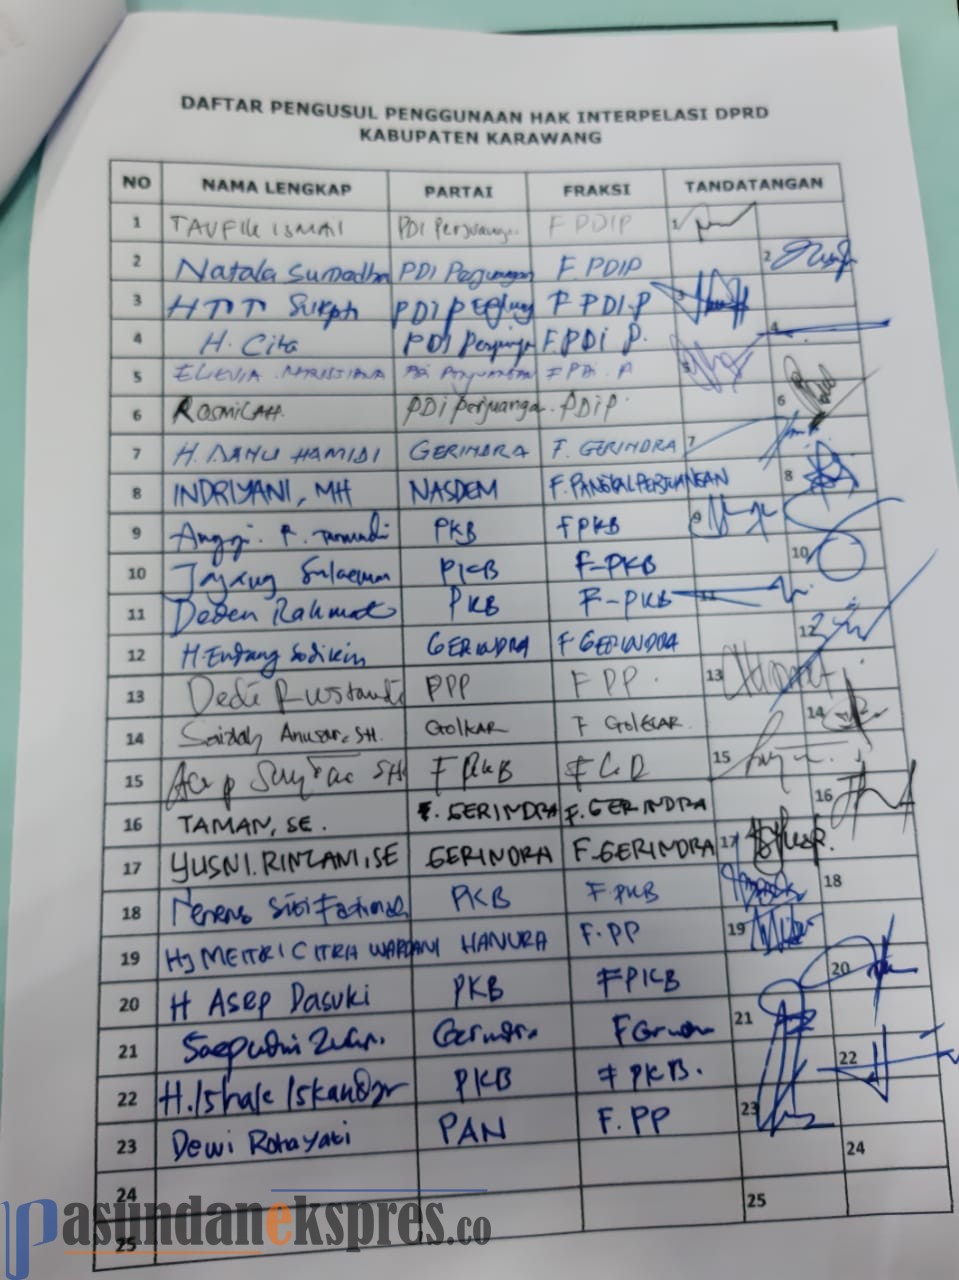 DAFTAR PENGUSUL PENGGUNAAN HAK INTERPELASI DPRD
KABUPATEN KARAWANG
NO NAMA LENGKAP PARTAI FRAKSI TANDATANGAN
1 TAUFIK ISMAIL PDI Perjuangan F PDIP 1
2 Natala Sumedha PDI Perjuangan F. PDIP 2
3 PDI F PDI-P 3
4 H. Cita PDI Perjuangan F.PDI P. 4
5 PDI Perjuangan FPDI.P 5
6 ROSMILAH. PDI Perjuangan. PDIP. 6
7 H. DANU HAMIDI GERINDRA F. GERINDRA 7
8 INDRIYANI, MH NASDEM F. PANGKAL PERJUANGAN 8
9 Anggi. R. PKB FPKB 9
10 Jajang Sulaeman PKB F-PKB 10
11 Deden Rahmat PKB F-PKB 11
12 H. Endang Sodikin GERINDRA F GERINDRA 12
13 Dede Rustandi PPP F PP. 13
14 Saidah Anwar, SH. GOLKAR F GOLKAR. 14
15 Acep SH F PKB 15
16 TAMAN, SE. F. GERINDRA F. GERINDRA 16
17 YUSNI. RINZANI, SE GERINDRA F-GERINDRA 17
18 Siti Fatimah PKB F.PKB 18
19 Hj MEITRI CITRA WARDANI HANURA F. PP 19
20 H Asep Dasuki PKB FPKB 20
21 Saepudin Gerindra F 21
22 H. Ishak Iskandar PKB F PKB. 22
23 Dewi Rohayati PAN F. PP 23
24 24
25 25
Pasundanekspres.co